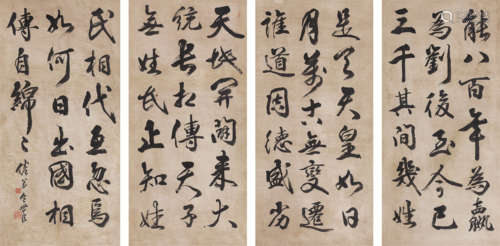 能八百年為嬴
為劉後至今已
三千其間幾姓
是天天皇如日
月萬古無變遷
誰道周德盛劣
天地開闢來大
統長相傳天子
無姓氏止知姓
氏相代亟忽焉
如何日出國相
傳自綿々